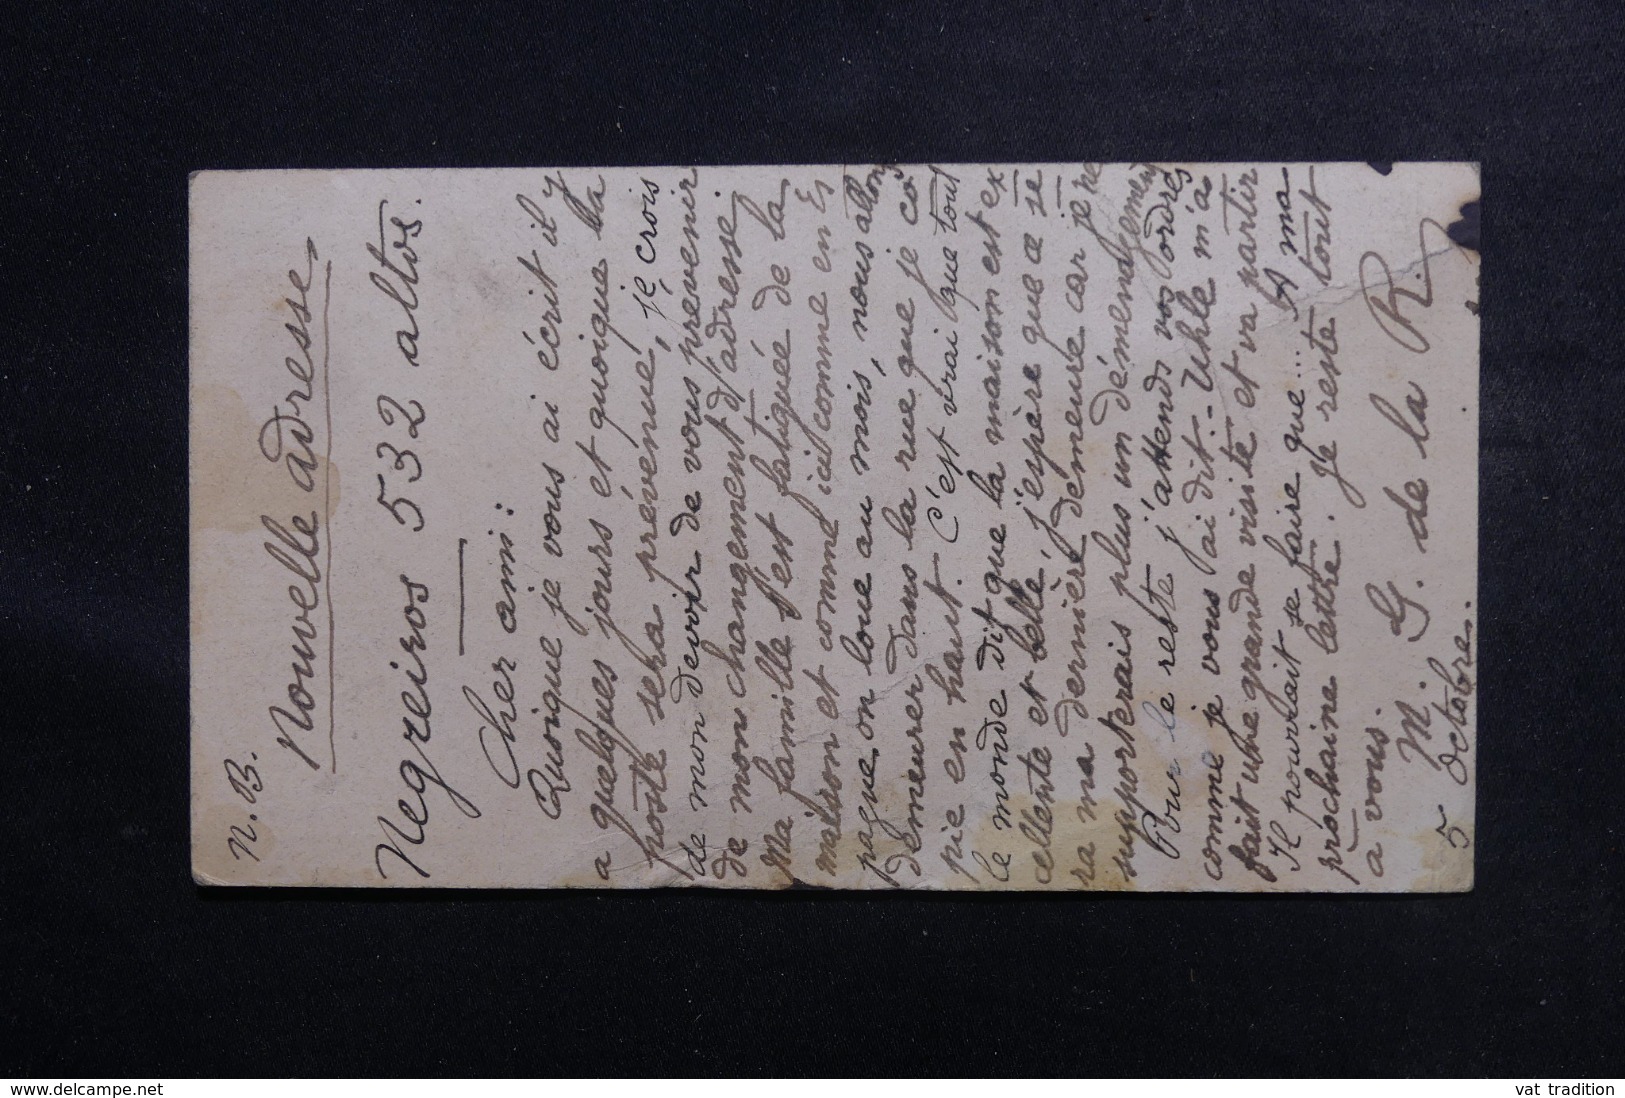 N.B.
Nouvelle adresse,
Negreiros 532 altos.
Cher ami:
Quoique je vous ai écrit il y
a quelques jours et quoique la
poste sera prévenue, je crois
de mon devoir de vous prevenir
de mon changement d'adresse.
Ma famille s'est fatiguée de la
maison et comme ici comme en Es
pagne on loue au mois, nous allons
demeurer dans la rue que je co
pie en haut. C'est vrai que tout
le monde dit que la maison est ex
cellente et belle, j'espère que ce se
ra ma dernière demeure car je ne
supporterais plus un déménagement
Pour le reste j'attends vos ordres
comme je vous l'ai dit. Uhle m'a
fait une grande visite et va partir
Il pourrait se faire que... A ma
prochaine lettre. Je reste tout
à vous.
M. G. de la R.
5 Octobre.
www.delcampe.net
vat tradition